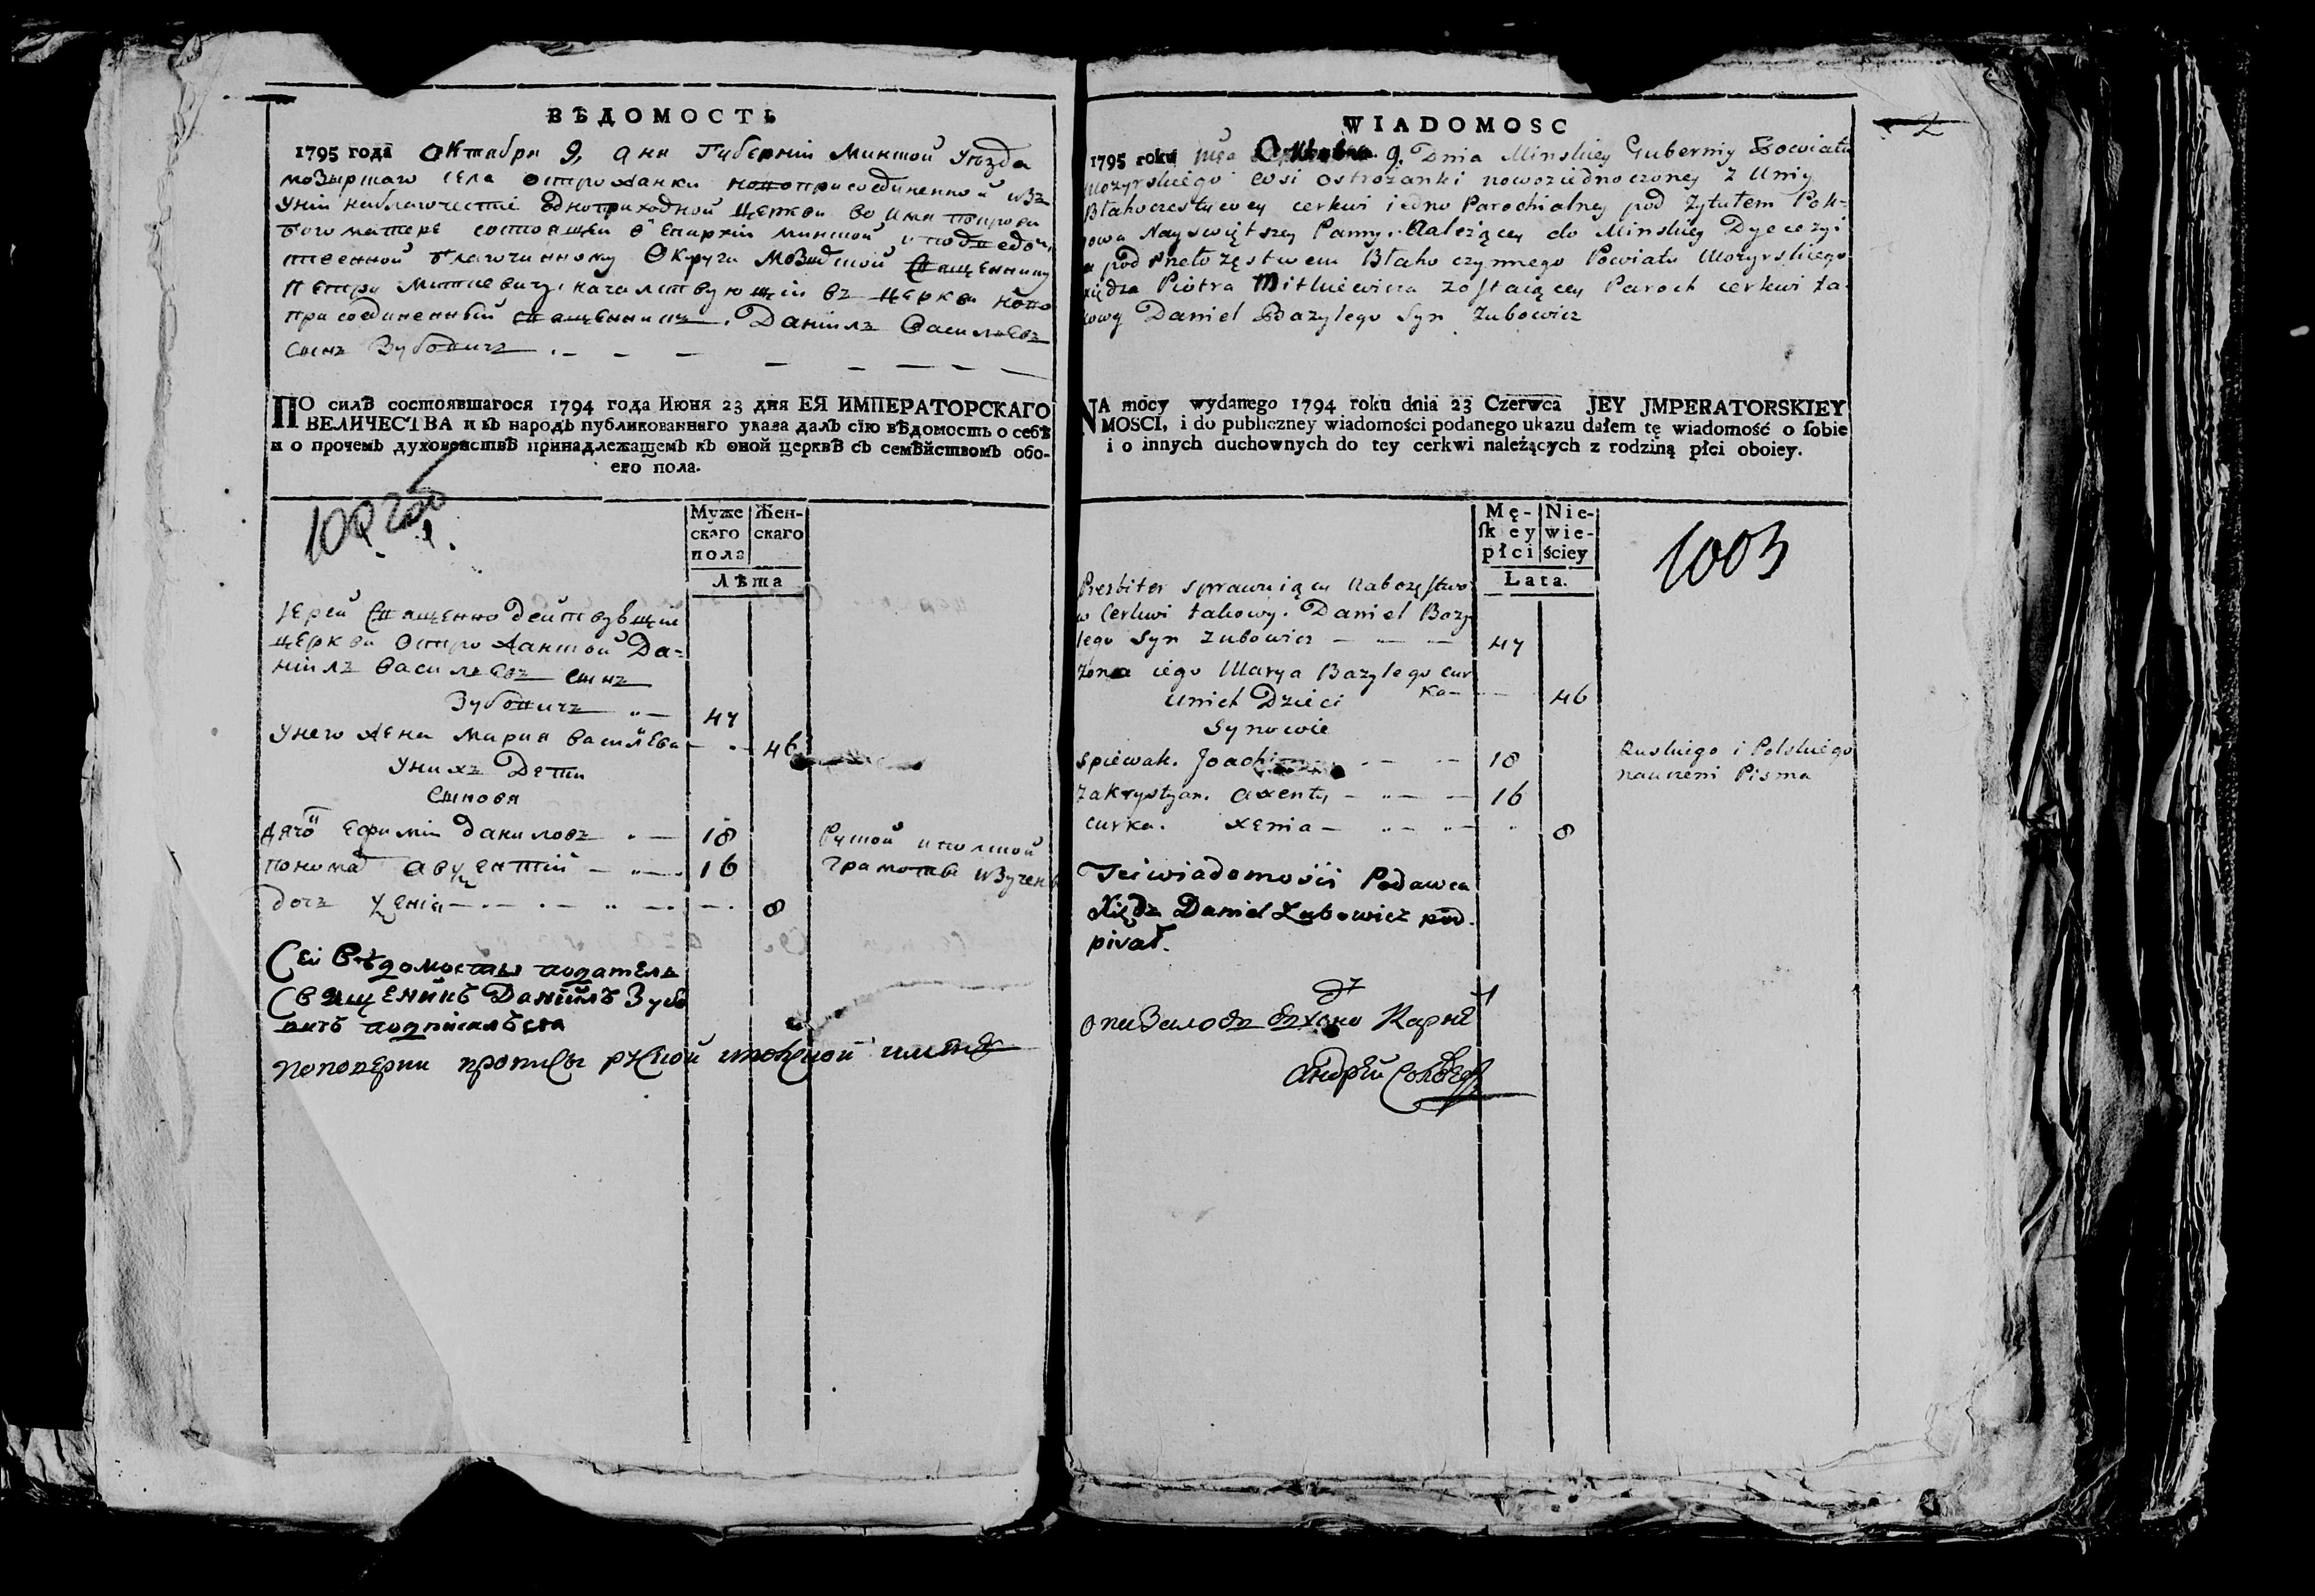 ВѢДОМОСТЬ
1795 года Октабря 9, дня Губерніи Минской Уѣзда
мозырскаго села острожанки новоприсоединенной изъ
Уніи на благочестіе одноприходной церкви во имя покрова
богоматере состоящеи в Епархіи минской и подведом,
ственной благочинному Округи Мозырской Священнику
Петру Миткевичу, началствующій въ церкви ново
присоединенный священникъ. Даніилъ Василевъ
сынъ Зубовичъ
ПО силѣ состоявшагося 1794 года Июня 23 дня ЕЯ ИМПЕРАТОРСКАГО
ВЕЛИЧЕСТВА и въ народъ публикованнаго указа далъ сію вѣдомость о себѣ
и о прочемъ духовенствѣ принадлежащемъ къ оной церквѣ съ семѣйствомъ обо-
его пола.
Муже Жен-
скаго скаго
пола
Лѣта
Іерей Священно действующій
церкви Острожанской Да=
ніилъ Василевъ сынъ
Зубовичъ 47
Унего жена Мария Василева 46
Унихъ Дети
Сынове
дячо Ефимій даниловъ 18 Руской и полской
понома Авѯентій 16 Грамотѣ изучены
дочъ Ѯеніа 8
Сей Вѣдомости податель
Священникъ Даніилъ Зубо
вичъ подписалься
WIADOMOSC
1795 roku 9. Dnia Minskiey Guberniy Powiatu
Mozyrskiego wsi Ostrożanki nowoziednoczoney z Uniy
Błahoczestiwey cerkwi iedno Parochialney pod Tytułem Pok=
rowa Nayświętszey Panny. Należącey do Minskiey Dyecezyi
a pod Błahoczynnego Powiatu Mozyrskiego
xiędza Piotra Mitkiewicza zostaiącey Paroch cerkwi ta
kowey Daniel Bazylego Syn Zubowicz
NA mocy wydanego 1794 roku dnia 23 Czerwca JEY JMPERATORSKIEY
MOSCI, i do publiczney wiadomości podanego ukazu dałem tę wiadomość o ſobie
i o innych duchownych do tey cerkwi należących z rodziną płci oboiey.
Mę- Nie-
ſkey wie-
płci ściey
Lata.
1003
Prezbiter sprawuiący Nabożęſtwo
w Cerkwi takowy. Daniel Bazy
lego Syn Zubowicz 47
żona iego Marya Bazylego cur
ka 46
Unich Dzieci
Synowie
Spiewak. Joachim 18 Ruskiego i Polskiego
nauczeni Pisma
Zakrystyan. Axenty 16
curka. Xenia 8
Tei wiadomości Podawca
Xiądz Daniel Zubowicz pod-
pisał.
2